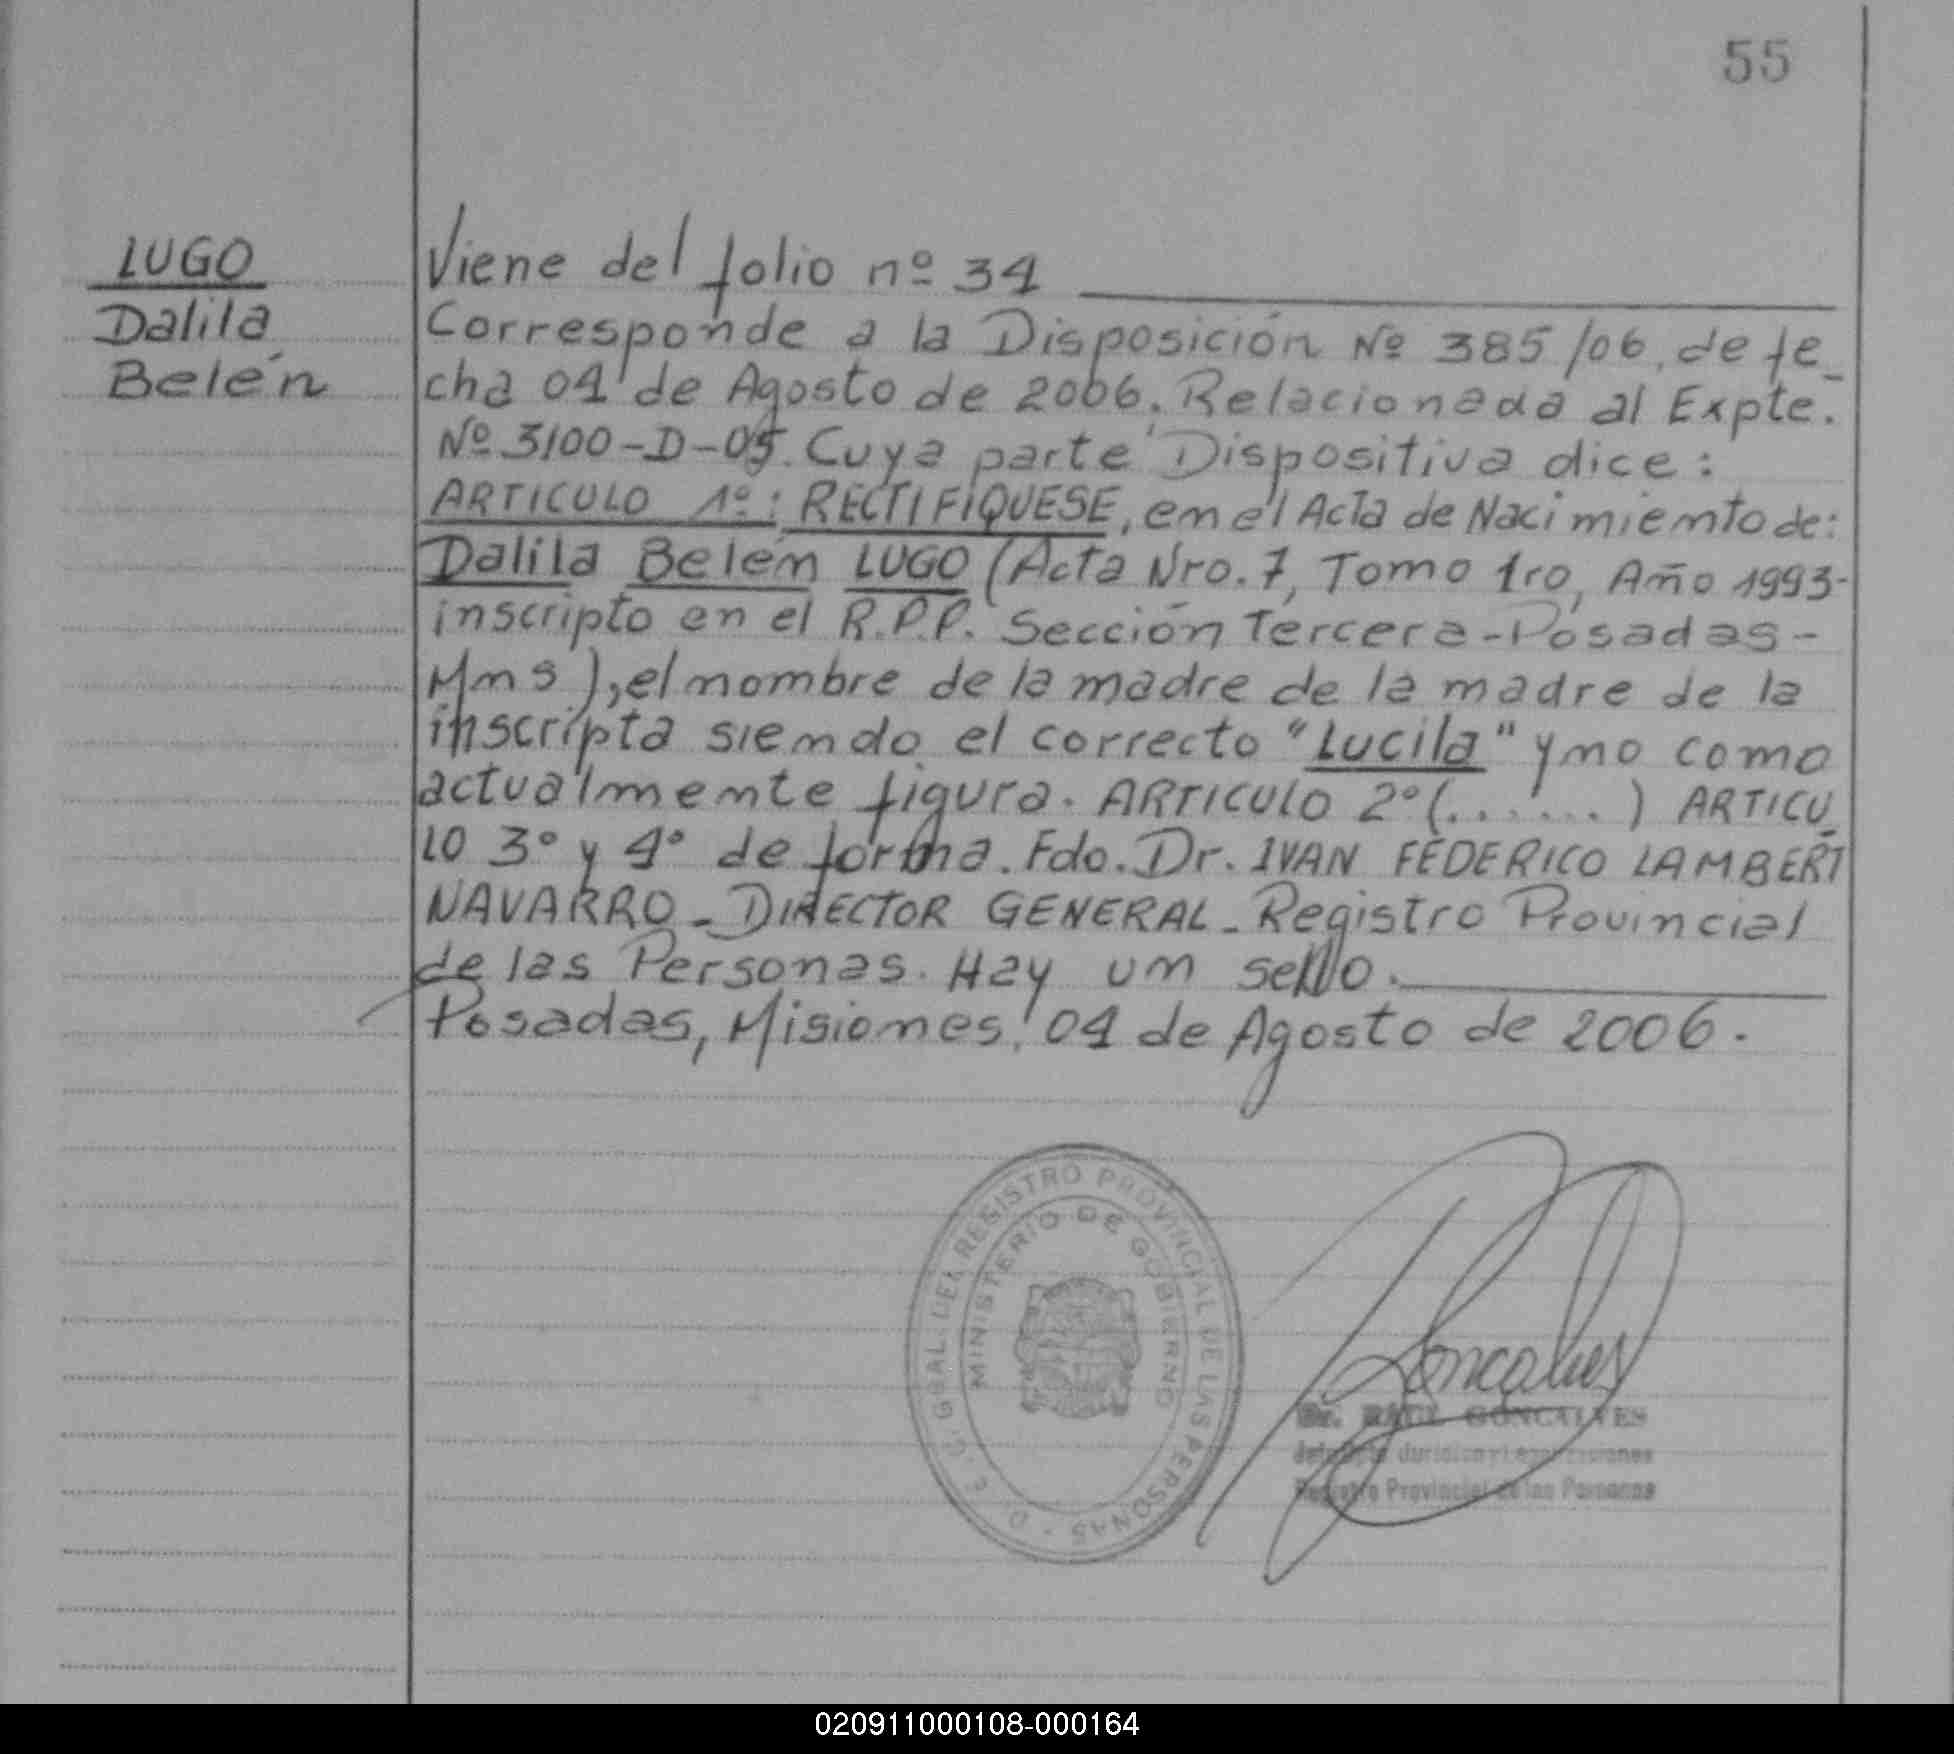 55
LUGO
Dalila
Belén
Viene del folio nº 34
Corresponde a la Disposición Nº 385/06, de fe_
cha 04 de Agosto de 2006. Relacionada al Expte.
Nº 3100-D-05. Cuya parte Dispositiva dice:
ARTICULO 1º: RECTIFIQUESE, en el Acta de Nacimiento de:
Dalila Belén LUGO (Acta Nro. 7, Tomo 1ro, Año 1993-
inscripto en el R.P.P. Sección Tercera-Posadas-
Mns), el nombre de la madre de la madre de la
inscripta siendo el correcto "Lucila" y no como
actualmente figura. ARTICULO 2º (......) ARTICU_
LO 3º y 4º de forma. Fdo. Dr. IVAN FEDERICO LAMBERT
NAVARRO_DIRECTOR GENERAL_Registro Provincial
de las Personas. Hay un sello.
Posadas, Misiones, 04 de Agosto de 2006.
D.E.C. GRAL. DEL REGISTRO PROVINCIAL DE LAS PERSONAS
MINISTERIO DE GOBIERNO
Goncalves
Dr. RAUL GONCALVES
Registro Provincial de las Personas
020911000108-000164